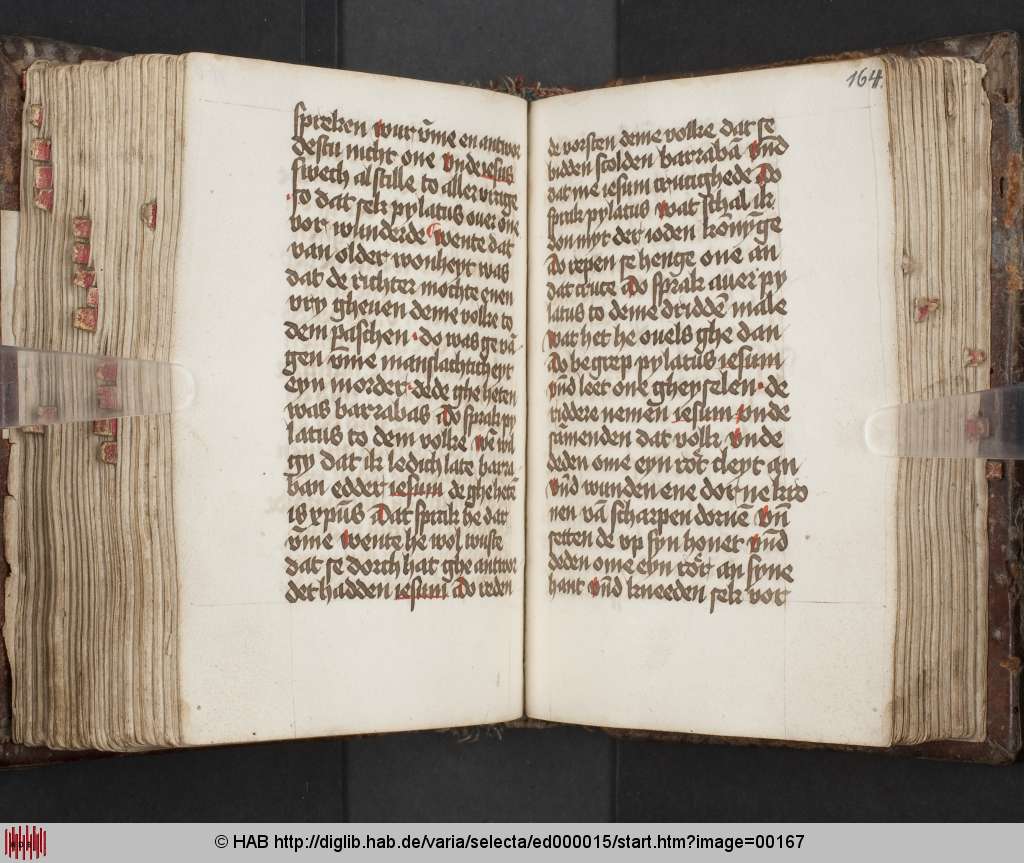 spreken wur v̄me en antwor
destu nicht one vnde iesus
swech al stille to aller vrage
so dat sek pylatus ouer one
vor wunderde wente dat
van older wonheyt was
dat de richter mochte enen
vry gheuen deme volke to
dem paschen · do was ge vā
gen v̄me manslachticheyt
eyn morder · dede ghe heten
was barrabas do sprak py
latus to dem volke
gy dat ik ledich late barra
ban edder iesum de ghe hetē
is xpūs dat sprak he dar
v̄me wente he wol wuste
dat se dorch hat ghe antwor
det hadden iesum do reden
164.
de vorsten deme volke dat se
bidden scolden barrabā vn̄d
dat me iesum crucighede do
sprak pylatus wat schal ik
don myt der ioden konȳge
do repen se henge one an
dat cruce do sprak auer py
latus to deme driddē male
wat het he ouels ghe dan
do begrep pylatus iesum
vn̄d leet one gheyselen · de
riddere nemen iesum vnde
sāmenden dat volk vnde
deden ome eyn rot cleyt an
vn̄d wunden ene dorne kro
nen vā scharpen dornē vn̄
setten de vp syn houet vn̄d
deden ome eyn ror an syne
hant vn̄d kneeden sek vor
© HAB http://diglib.hab.de/varia/selecta/ed000015/start.htm?image=00167